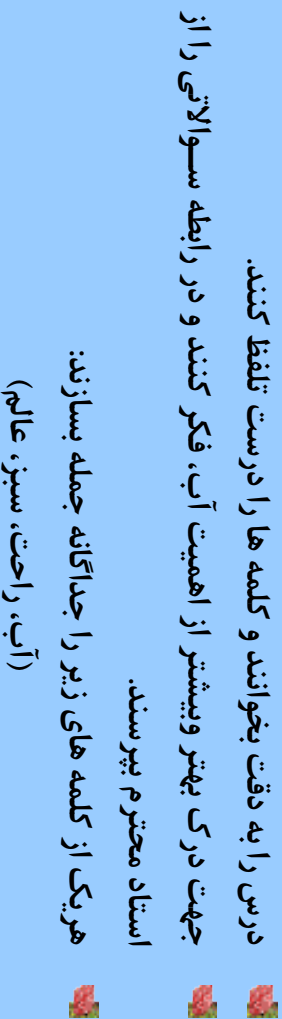 درس را به دقت بخوانند و کلمه ها را درست تلفظ کنند.
جهت درک بهتر وبیشتر از اهمیت آب، فکر کنند و در رابطه ســوالاتی را از
استاد محترم بپرسند.
هریک از کلمه های زیر را جداگانه جمله بسازند:
(آب، راحت، سبز، عالم)